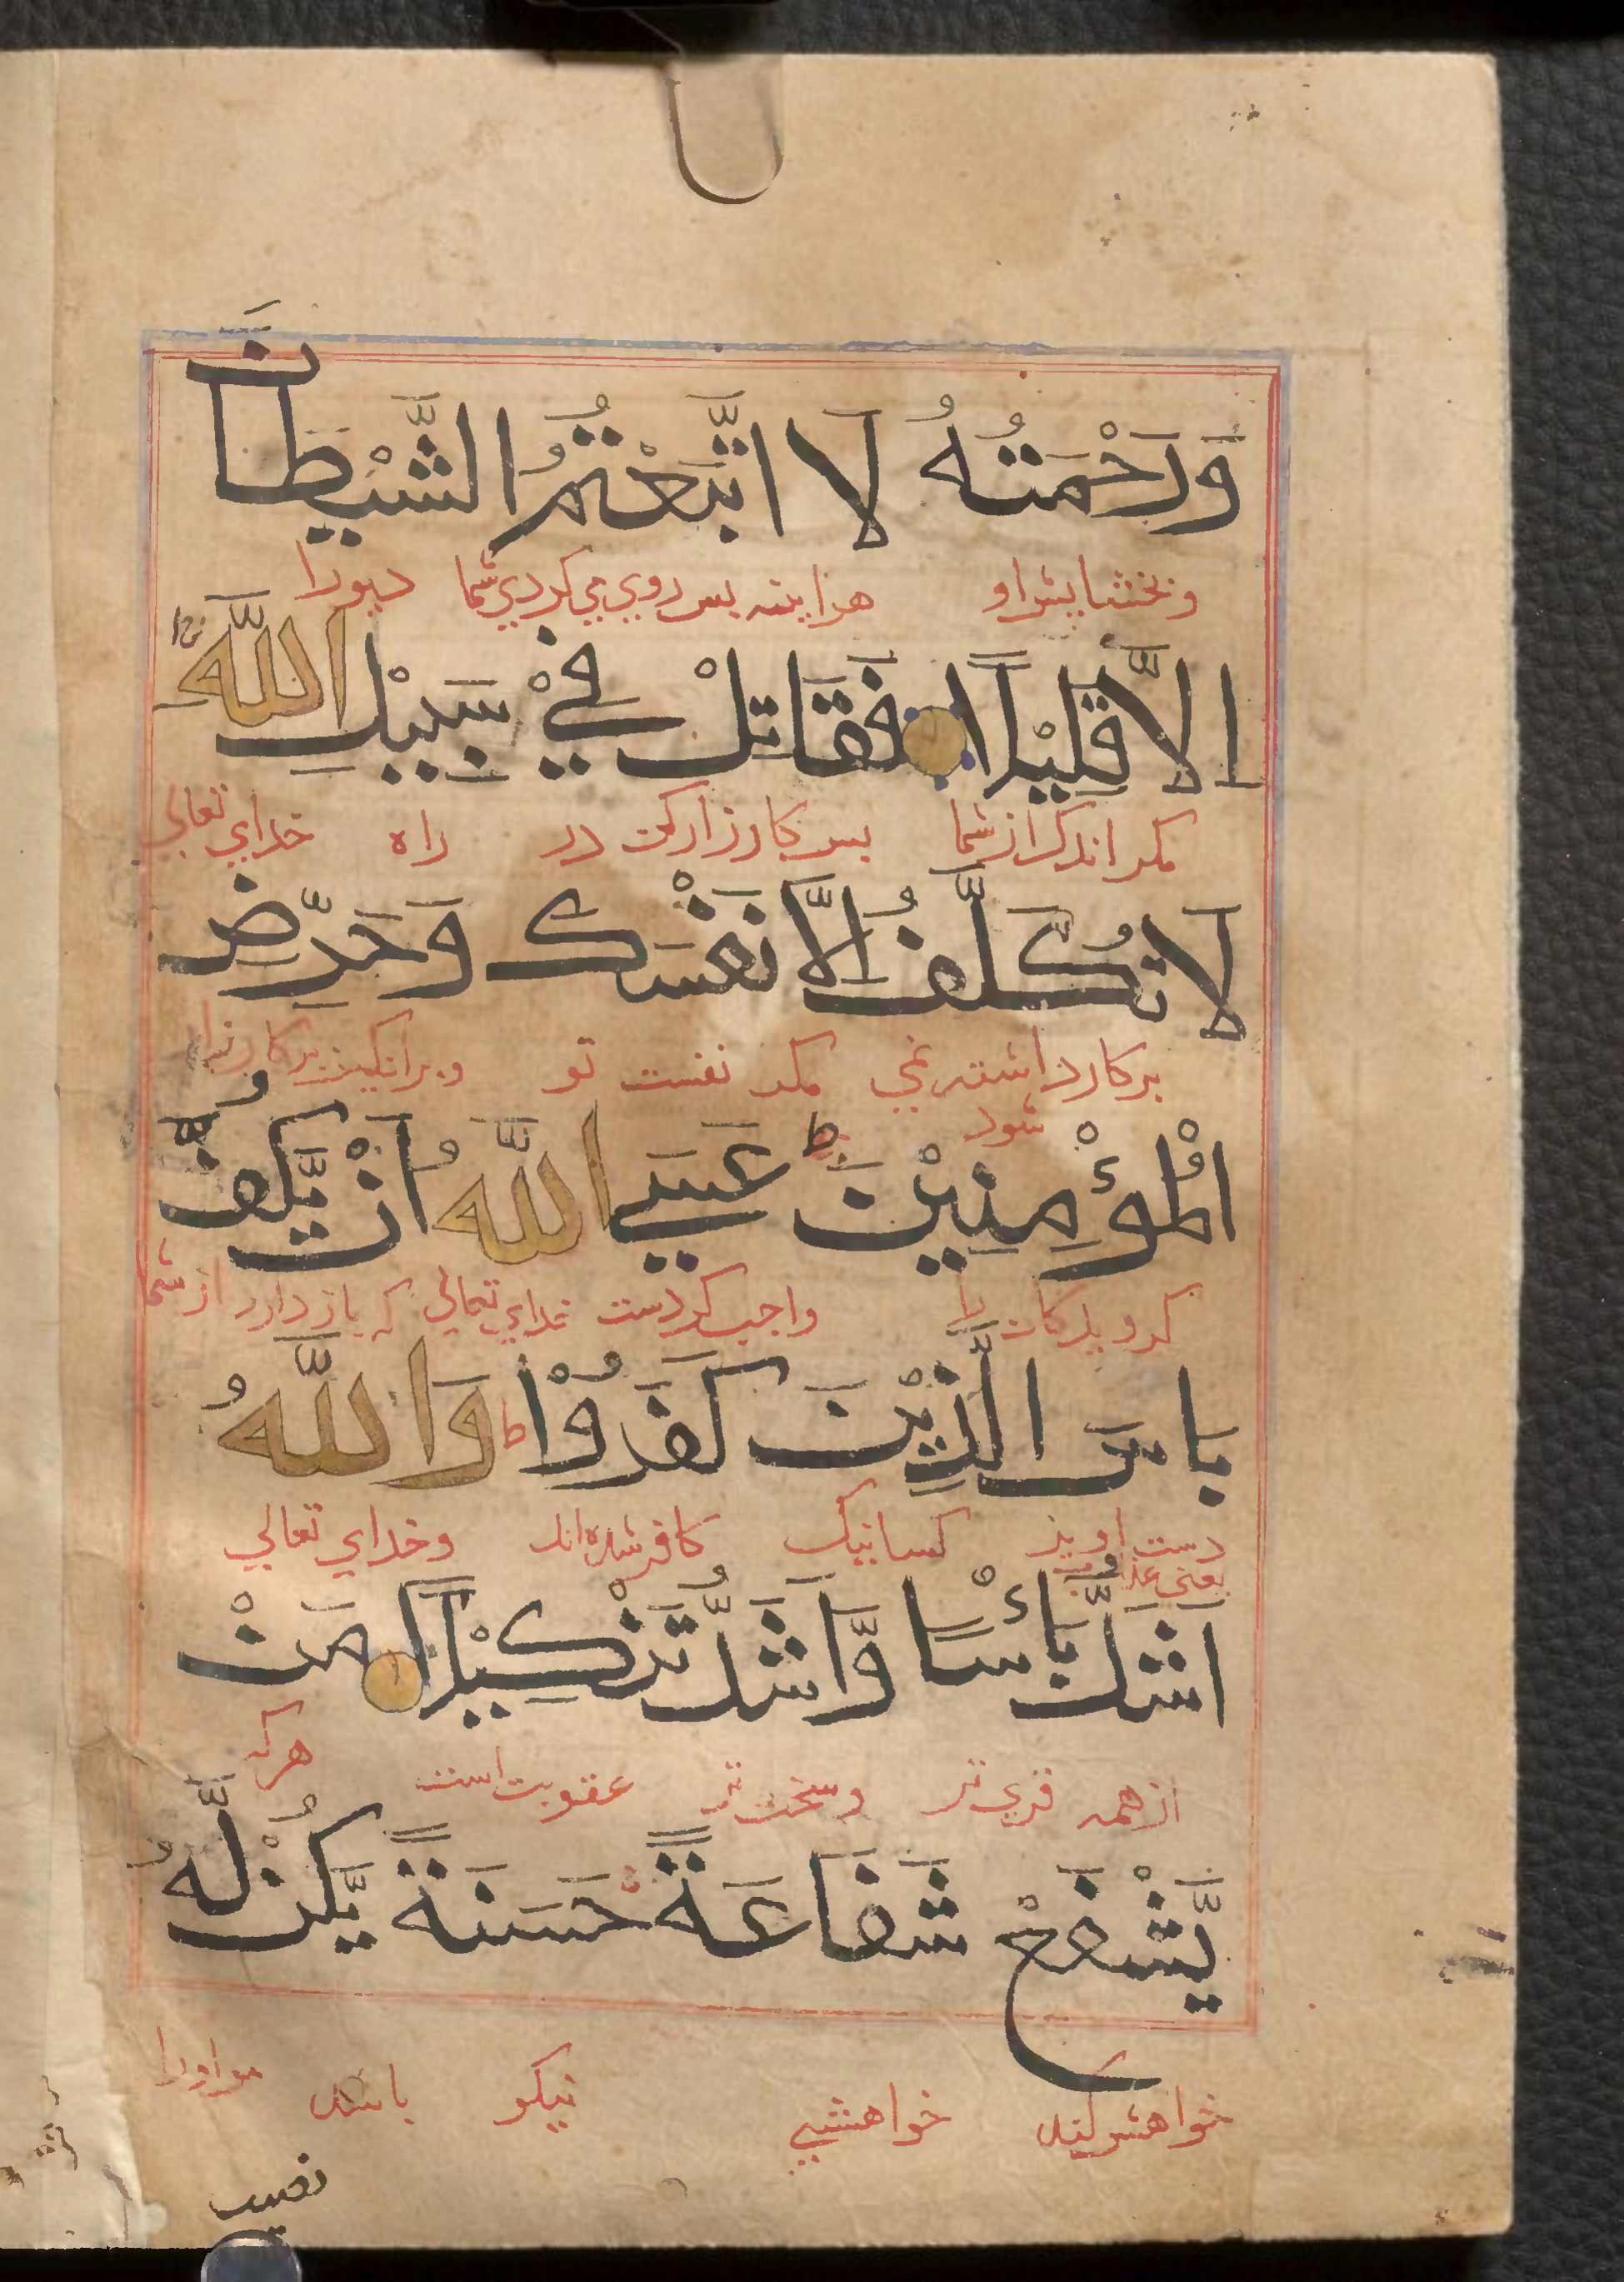 وَرَحْمَتُهُ لَا اتَّبَعْتُمُ الشَّيْطَانَ
وبخشایش او هراینه بس روي مي كردي شما ديورا
اِلَّا قَلِيْلًا فَقَاتِلْ فِيْ سَبِيْلِ اللّٰهِ
مكر اندك از شما بس كارزار كن در راه خداي تعالي
لَا تُكَلَّفُ اِلَّا نَفْسَكَ وَحَرِّضِ
بركار داشته نمي شود مكر نفست تو وبرانكيز بركارزار
الْمُؤْمِنِيْنَ ط عَسَي اللّٰهُ اَنْ يَّكُفَّ
كرويدكان را واجب كردست خداي تعالي كه باز دارد از شما
بَاسَ الَّذِيْنَ كَفَرُوْا ط وَاللّٰهُ
دست اويز كسانيك كافر شده اند وخداي تعالي
يعني
اَشَدُّ بَأْسًا وَّاَشَدُّ تَنْكِيْلًا مَنْ
از همه قوي تر وسخت تر عقوبت است هركه
يَّشْفَعْ شَفَاعَةً حَسَنَةً يَّكُنْ لَّهُ
خواهش كند خواهشي نيكو باشد مر اورا
نصيب